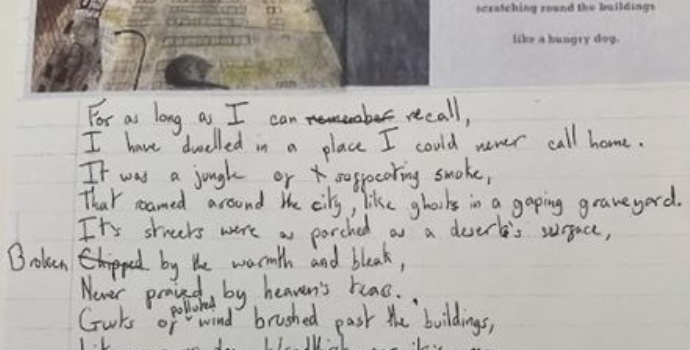 scratching round the buildings
like a hungry dog.
For as long as I can remember recall,
I have dwelled in a place I could never call home.
It was a jungle of suffocating smoke,
That roamed around the city, like ghosts in a gaping graveyard.
It's streets were as parched as a desert's surface,
Broken Chipped by the warmth and bleak,
Never by heaven's tears.
polluted
Gusts of wind brushed past the buildings,